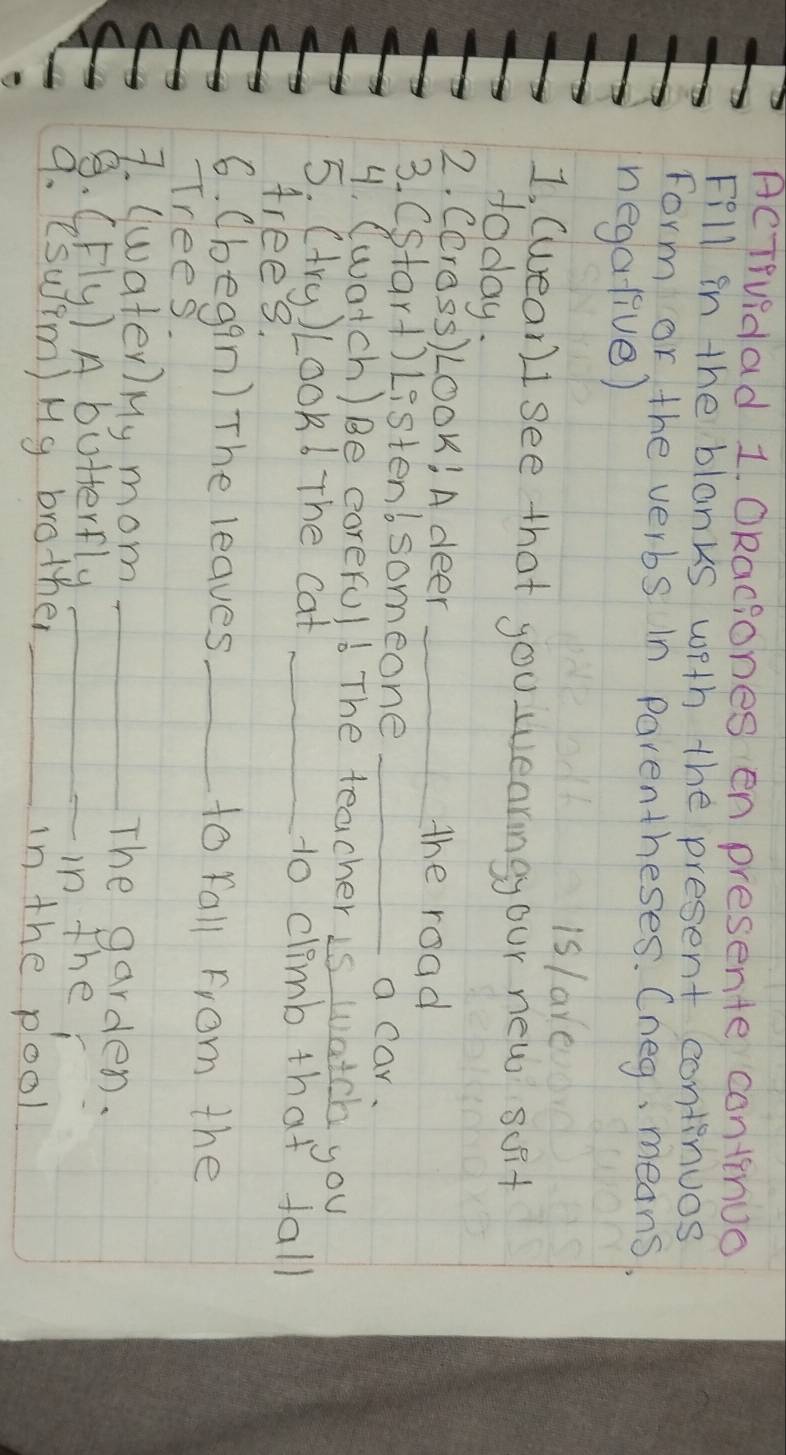 ACTividad 1. ORaciones en presente continuo
Fill in the blanks with the present continuos
form or the verbs in parentheses. (neg, means
negative)
is/are
1. (wear) I see that you wearing your new suit
today.
2. (cross) Look! A deer ______ the road
3. (start) Listen! someone ______ a car.
4. (watch) Be careful! The teacher is watch you
5. (try) Look! The cat ______ to climb that tall
tree.
6. (begin) The leaves ______ to fall From the
Trees.
7. (water) My mom ______ The garden.
8. (Fly) A butterfly ______ in the
9. (swim) My brother ______ in the pool